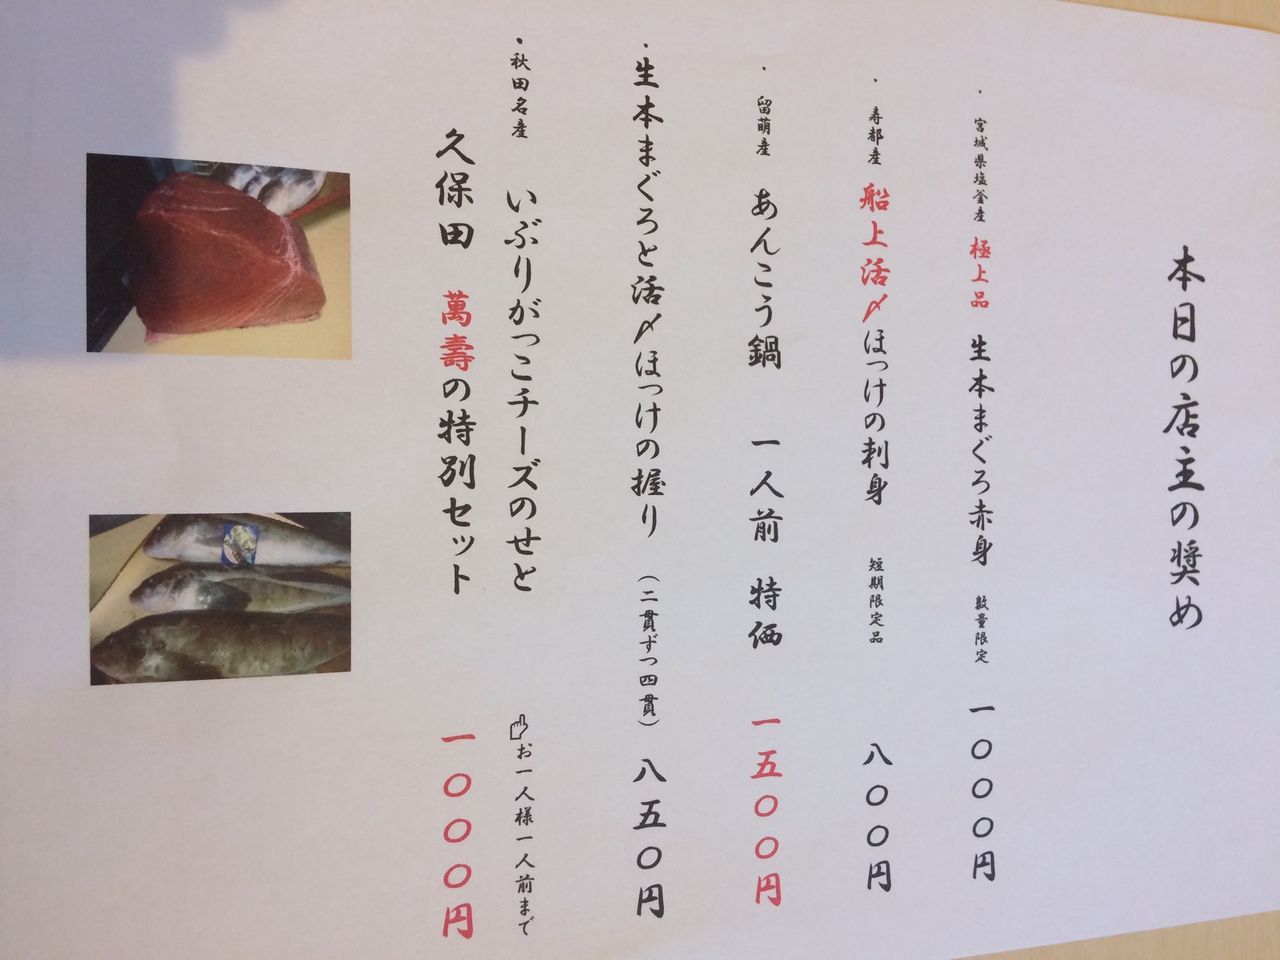 本日の店主の奨め
・宮城県塩釜産 極上品 生本まぐろ赤身 数量限定 一〇〇〇円
・寿都産 船上活〆ほっけの刺身 短期限定品 八〇〇円
・留萌産 あんこう鍋 一人前 特価 一五〇〇円
・生本まぐろと活〆ほっけの握り (二貫ずつ四貫) 八五〇円
・秋田名産 いぶりがっこチーズのせと ☝お一人様一人前まで
久保田 萬壽の特別セット 一〇〇〇円